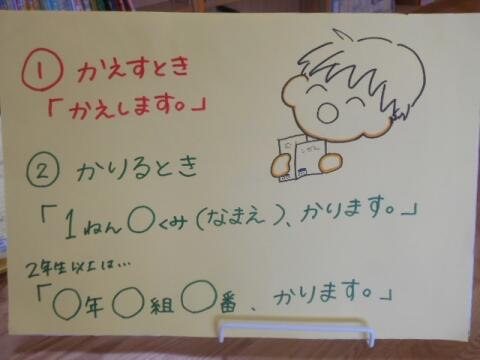 ① かえすとき
「かえします。」
② かりるとき
「1ねん〇くみ(なまえ)、かります。」
2年生以上は…
「〇年〇組〇番、かります。」